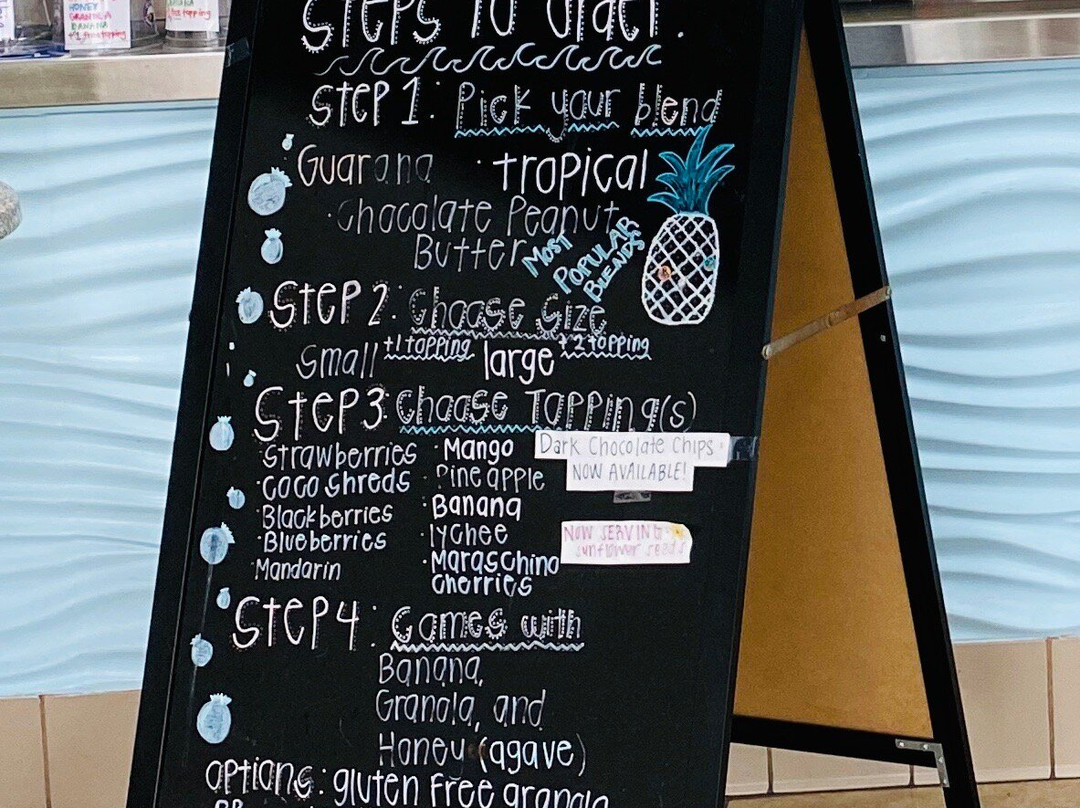 HONEY
GRANOLA
BANANA
+1 free topping
Steps To Order.
Step 1: Pick your blend
Guarana · tropical
· Chocolate Peanut
Butter
Most
POPULAR
BLENDS
Step 2: Choose Size
Small +1 topping large +2 topping
Step 3 Choose Topping(s)
Strawberries · Mango
· Coco Shreds · Pineapple
· Blackberries · Banana
· Blueberries · lychee
Mandarin · Maraschino
cherries
Dark Chocolate Chips
NOW AVAILABLE!
NOW SERVING
sunflower seeds
Step 4: Comes with
Banana,
Granola, and
Honey (agave)
Options: gluten free granola